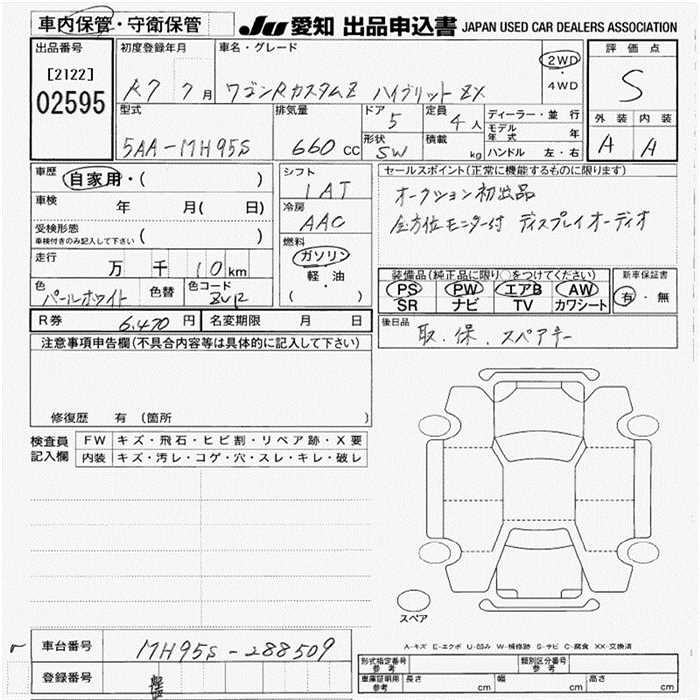 車内保管・守衛保管 JU 愛知 出品申込書 JAPAN USED CAR DEALERS ASSOCIATION
出品番号 初度登録年月 車名・グレード 評価点
[2122] R7 7月 ワゴンRカスタムZ ハイブリットZX 2WD・4WD S
02595
型式 排気量 ドア 定員 ディーラー・並行 外装 内装
5AA-MH95S 660cc 5 4人 モデル年式 年 A A
形状 SW 積載 kg ハンドル 左・右
車歴 自家用・( ) シフト セールスポイント(正常に機能するものに限ります)
車検 年 月( 日) IAT オークション初出品
冷房 AAC 全方位モニター付 ディスプレイオーディオ
受検形態 車検付きのみ記入して下さい ( )
燃料 ガソリン 軽・油 ( )
走行 万 千 10km 装備品(純正品に限り○をつけてください) 新車保証書
色 パールホワイト 色替 色コード ZVR PS PW エアB AW 有・無
SR ナビ TV カワシート
R券 6,470円 名変期限 月 日 後日品 取.保.スペアキー
注意事項申告欄(不具合内容等は具体的に記入して下さい)
修復歴 有(箇所 )
検査員記入欄 FW キズ・飛石・ヒビ割・リペア跡・X要
内装 キズ・汚レ・コゲ・穴・スレ・キレ・破レ
スペア
A-キズ E-エクボ U-凹み W-補修跡 S-サビ C-腐食 XX-交換済
車台番号 MH95S-288509
登録番号
型式指定番号 参考 類別区分番号 参考
車庫証明用 参考 長さ cm 幅 cm 高さ cm